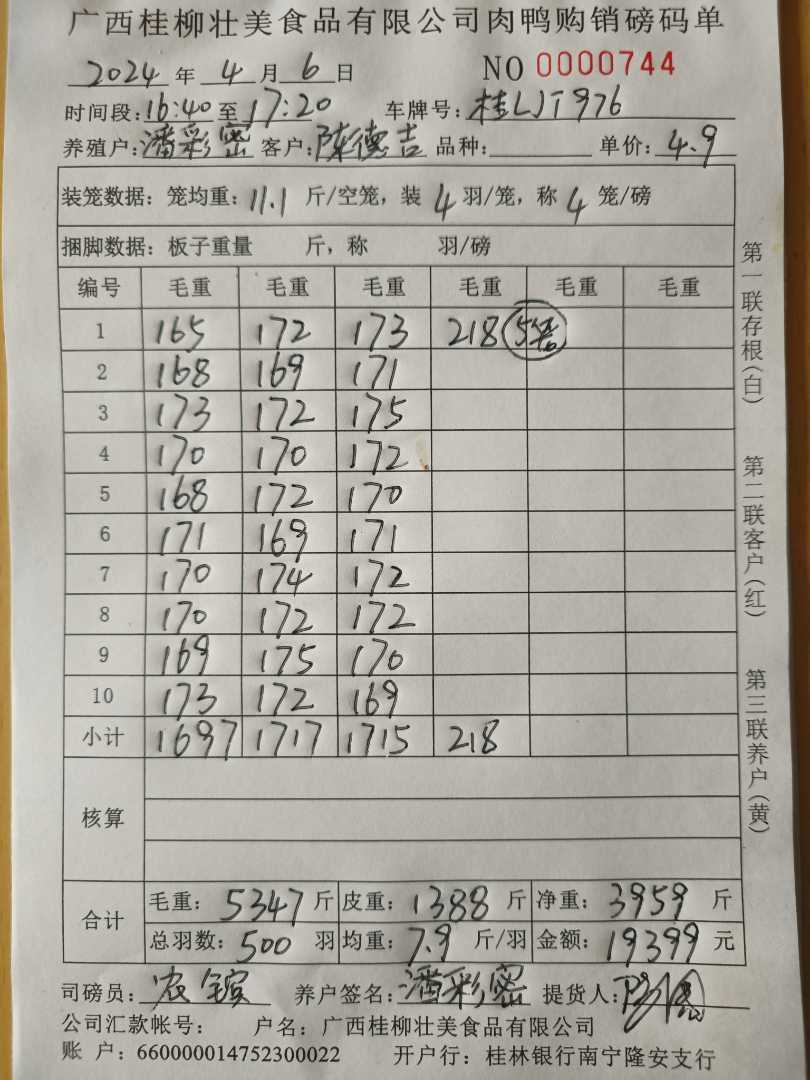 广西桂柳壮美食品有限公司肉鸭购销磅码单
2024 年 4 月 6 日 NO 0000744
时间段：16:40 至 17:20 车牌号：桂LJT976
养殖户：潘彩密 客户：陈德吉 品种： 单价：4.9
装笼数据：笼均重：11.1 斤/空笼，装 4 羽/笼，称 4 笼/磅
捆脚数据：板子重量 斤，称 羽/磅
编号 毛重 毛重 毛重 毛重 毛重 毛重
1 165 172 173 218 5笼
2 168 169 171
3 173 172 175
4 170 170 172
5 168 172 170
6 171 169 171
7 170 174 172
8 170 172 172
9 169 175 170
10 173 172 169
小计 1697 1717 1715 218
核算
合计 毛重：5347 斤 皮重：1388 斤 净重：3959 斤
总羽数：500 羽 均重：7.9 斤/羽 金额：19399 元
司磅员：农镔 养户签名：潘彩密 提货人：
公司汇款帐号： 户名：广西桂柳壮美食品有限公司
账 户：660000014752300022 开户行：桂林银行南宁隆安支行
第一联存根（白）
第二联客户（红）
第三联养户（黄）